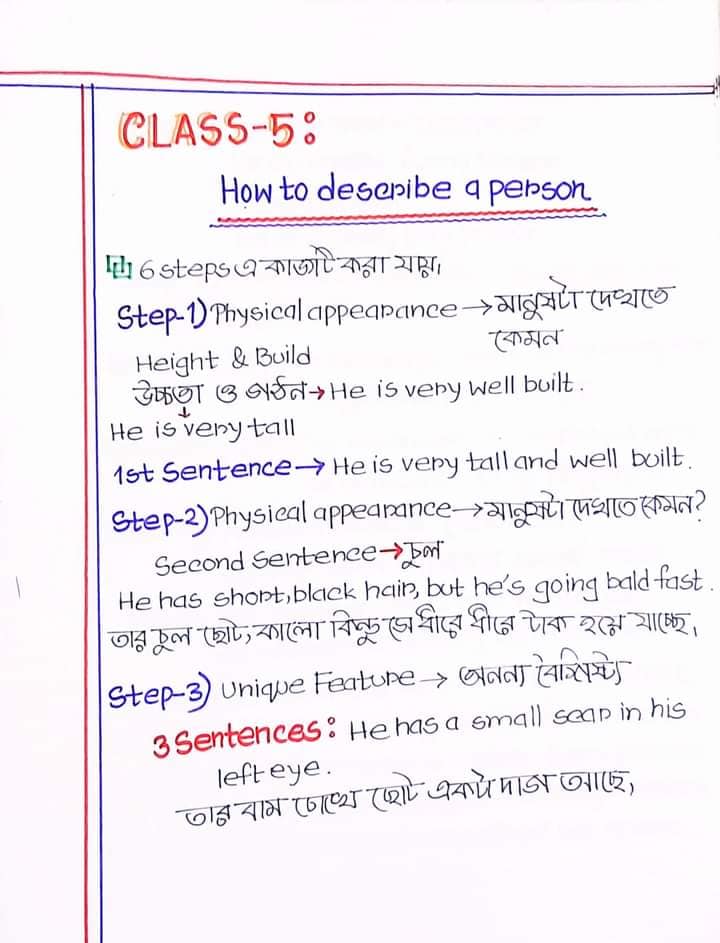 CLASS-5:
How to describe a person
6 steps এ কাজটি করা যায়।
Step-1) Physical appearance → মানুষটা দেখতে
কেমন
Height & Build
উচ্চতা ও গঠন → He is very well built.
He is very tall
1st Sentence → He is very tall and well built.
Step-2) Physical appearance → মানুষটা দেখতে কেমন?
Second Sentence → চুল
He has short, black hair, but he's going bald fast.
তার চুল ছোট, কালো কিন্তু সে ধীরে ধীরে টাক হয়ে যাচ্ছে,
Step-3) Unique Feature → অনন্য বৈশিষ্ট্য
3 Sentences: He has a small scar in his
left eye.
তার বাম চোখে ছোট একটা দাগ আছে,